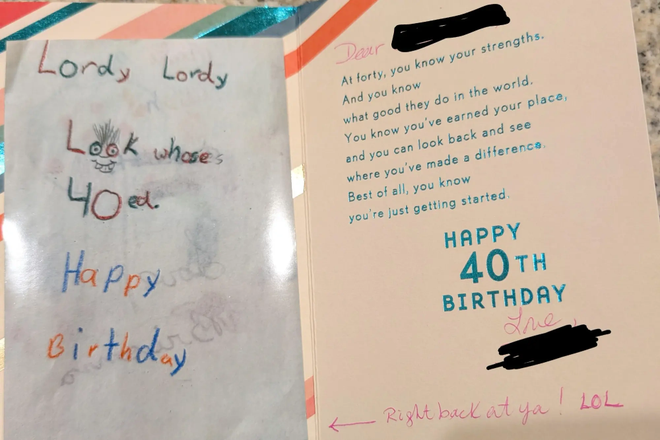 Lordy Lordy
Look whoses
40ed.
Happy
Birthday
Dear
At forty, you know your strengths.
And you know
what good they do in the world.
You know you've earned your place,
and you can look back and see
where you've made a difference.
Best of all, you know
you're just getting started.
HAPPY
40TH
BIRTHDAY
Love,
Right back at ya! LOL